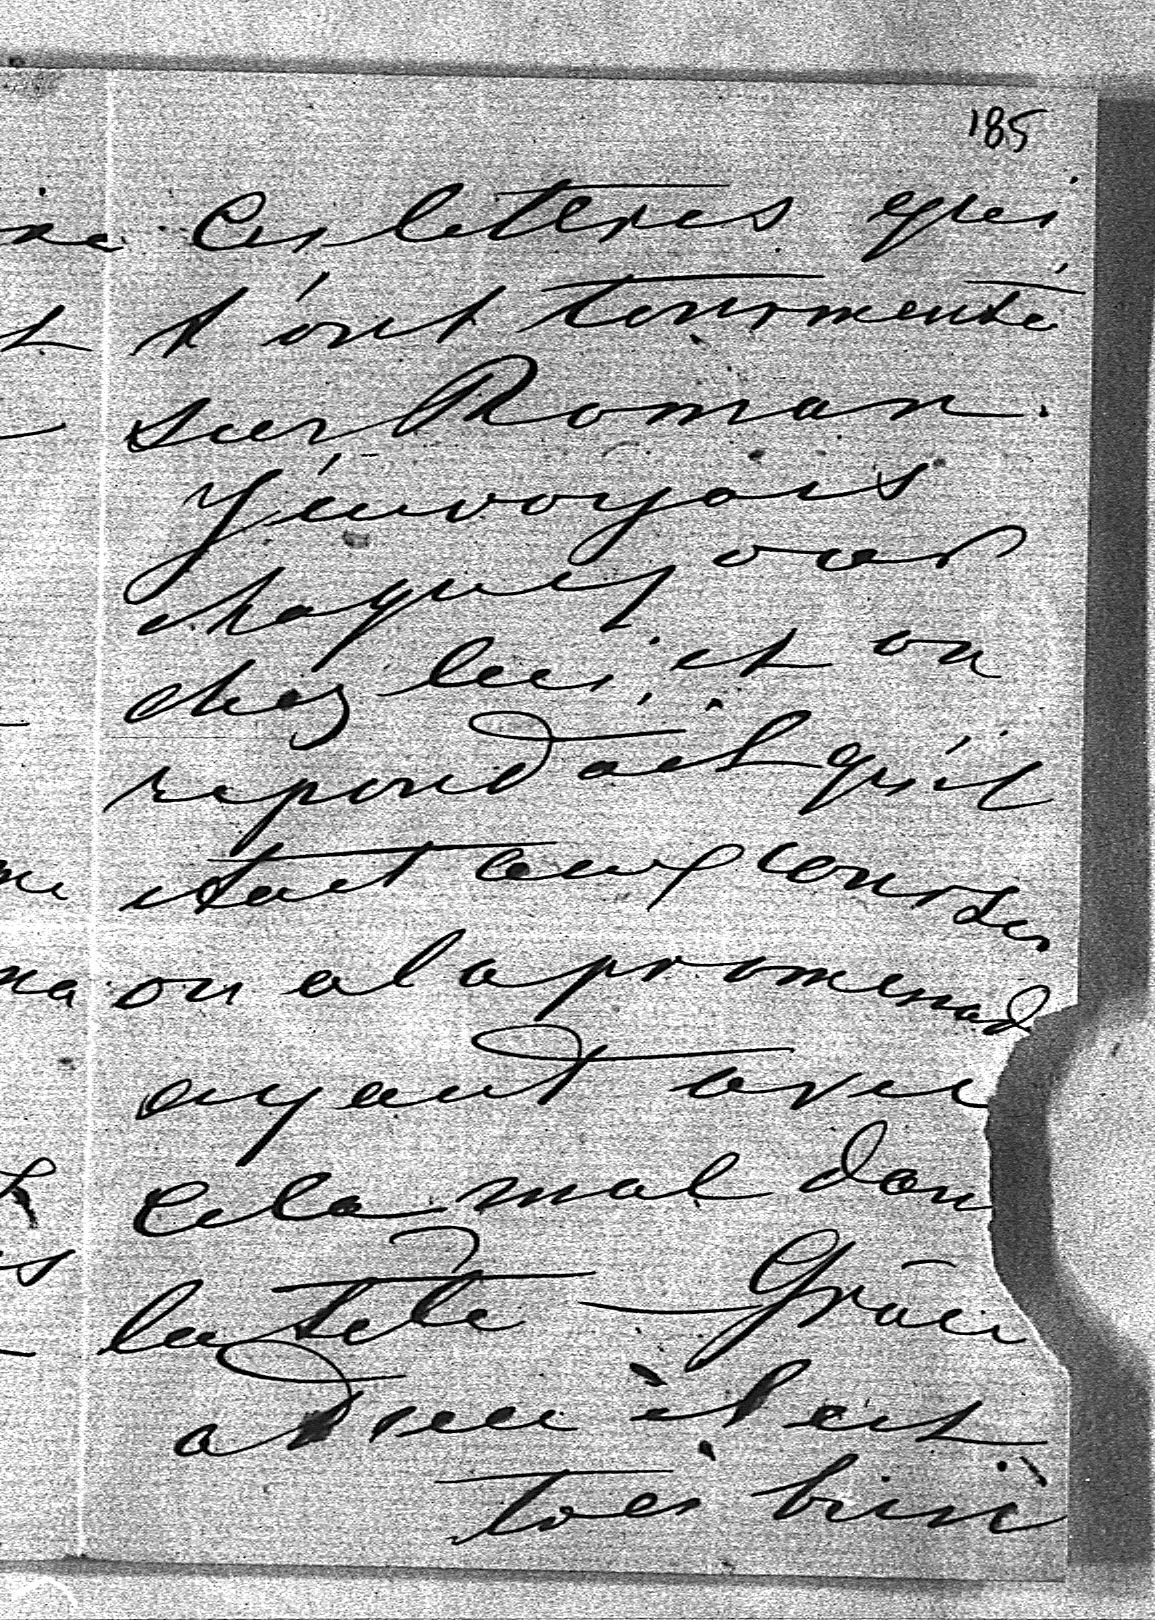 185
Ces lettres qui
t'ont tourmenté
sur Roman.
J'envoyais
chaque jour
chez lui, et on
repondait qu'il
etait aux courses
ou a la promenad
ayant avec
cela mal dan
la tête — Grâce
a Dieu il est
tres bien